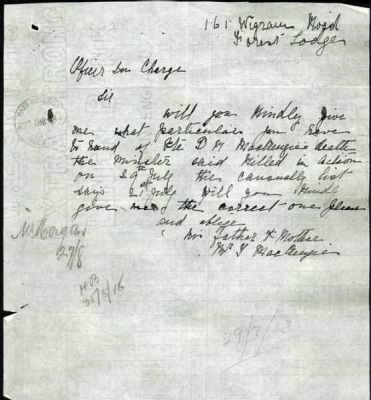 161 Wigram Road
Forest Lodge
Officer In Charge
Sir
Will you Kindly give
me what particulars you have
to hand of Pte D H MacKenzie's death
the Minister said Killed in action
on 29th July the casualty list
says 21st will you Kindly
give me the correct one please
and oblige
his Father & Mother
Mr J MacKenzie
McMorgan
29/8
HB